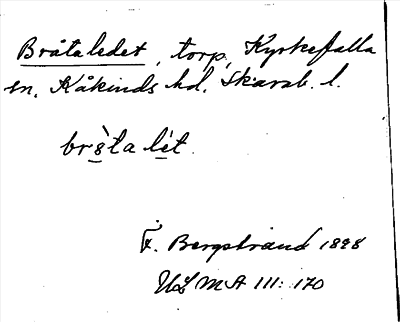 Bråtaledet, torp, Kyrkefalla
sn, Kåkinds hd, Skarab. l.
brò̲ta lé̲t.
F. Bergstrand 1898
ULMA 111: 170